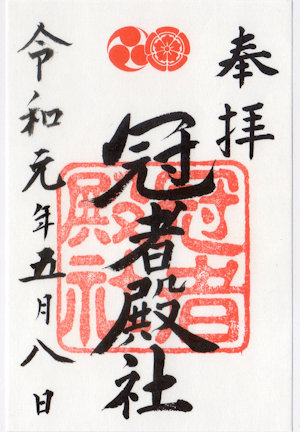 奉拝
冠者殿社
冠者殿社
令和元年五月八日